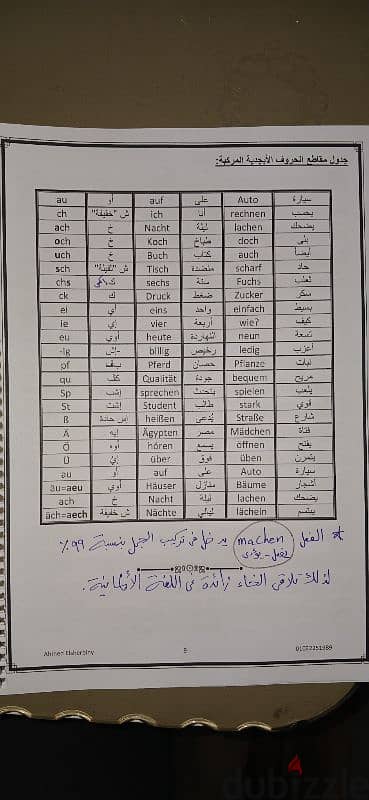 جدول مقاطع الحروف الأبجدية المركبة:
au أو auf على Auto سيارة
ch ش "خفيفة" ich أنا rechnen يحسب
ach خ Nacht ليلة lachen يضحك
och خ Koch طباخ doch بلى
uch خ Buch كتاب auch أيضاً
sch ش "ثقيلة" Tisch منضدة scharf حاد
chs sechs ستة Fuchs ثعلب
ck ك Druck ضغط Zucker سكر
ei أي eins واحد einfach بسيط
ie إي vier أربعة wie? كيف
eu أوي heute النهاردة neun تسعة
-ig إش- billig رخيص ledig أعزب
pf بف Pferd حصان Pflanze نبات
qu كف Qualität جودة bequem مريح
Sp إشب sprechen يتحدث spielen يلعب
St إشت Student طالب stark قوي
ß اس حادة heißen يُدعى Straße شارع
Ä إيه Ägypten مصر Mädchen فتاة
Ö أوه hören يسمع öffnen يفتح
Ü über فوق üben يتمرن
au أو auf على Auto سيارة
äu=aeu أوي Häuser منازل Bäume أشجار
ach خ Nacht ليلة lachen يضحك
äch=aech ش خفيفة Nächte ليالي lächeln يبتسم
* الفعل machen يدخل فى تركيب الجمل بنسبة ٩٩٪
يفعل - يؤدى
لذلك تلاقى الخاء زائدة فى اللغة الألمانية.
Ahmed Elsherbiny 9
dubizzle